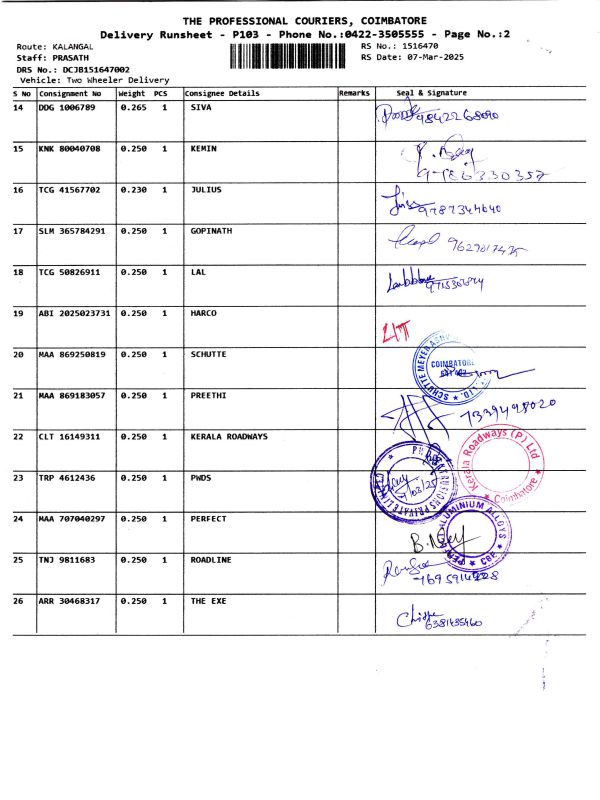 THE PROFESSIONAL COURIERS, COIMBATORE
Delivery Runsheet - P103 - Phone No.:0422-3505555 - Page No.:2
Route: KALANGAL RS No.: 1516470
Staff: PRASATH RS Date: 07-Mar-2025
DRS No.: DCJB151647002
Vehicle: Two Wheeler Delivery
S No Consignment No Weight PCS Consignee Details Remarks Seal & Signature
14 DDG 1006789 0.265 1 SIVA 9842268090
15 KNK 80040708 0.250 1 KEMIN
16 TCG 41567702 0.230 1 JULIUS 9787344640
17 SLM 365784291 0.250 1 GOPINATH
18 TCG 50826911 0.250 1 LAL
19 ABI 2025023731 0.250 1 HARCO
20 MAA 869250819 0.250 1 SCHUTTE COIMBATORE
21 MAA 869183057 0.250 1 PREETHI 7339498020
22 CLT 16149311 0.250 1 KERALA ROADWAYS Kerala Roadways (P) Ltd Coimbatore
23 TRP 4612436 0.250 1 PWDS
24 MAA 707040297 0.250 1 PERFECT ALUMINIUM ALLOYS CBE
25 TNJ 9811683 0.250 1 ROADLINE
26 ARR 30468317 0.250 1 THE EXE 6381435460